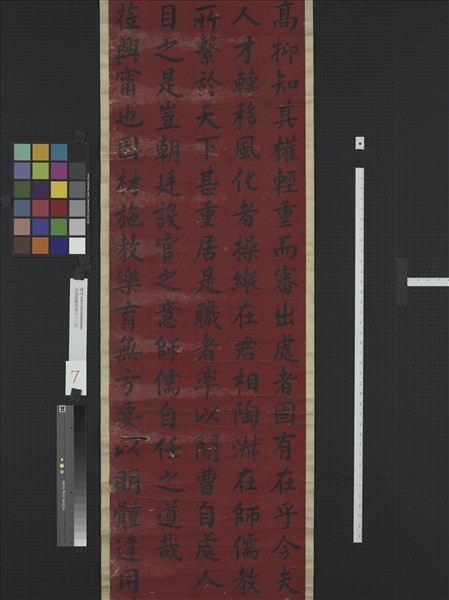 高抑知其權輕重而審出處者固有在乎今夫
人才轉移風化者操縱在君相陶淑在師儒教
所繫於天下甚重居是職者率以閒曹自處人
目之是豈朝廷設官之意師儒自任之道哉
莅興甯也因材施教樂育無方要以明體達用
7